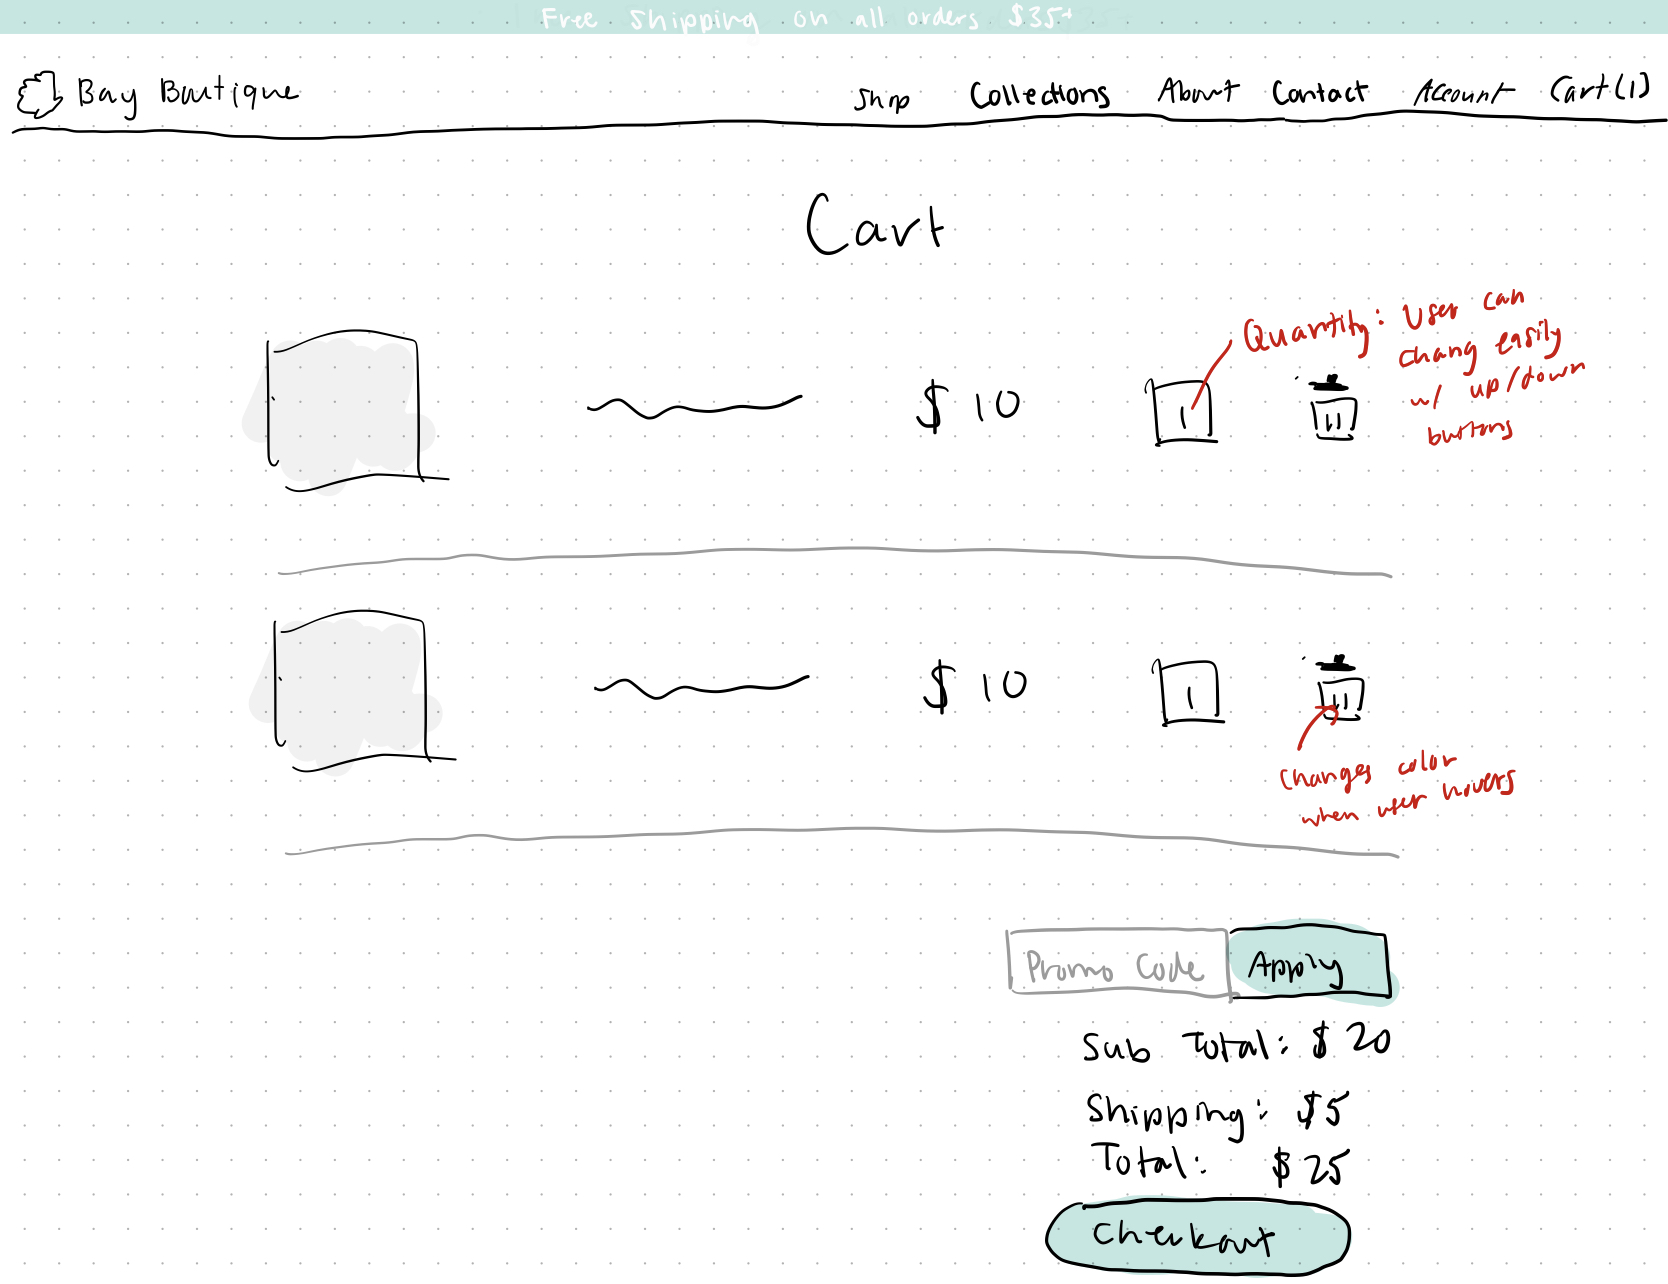 Free Shipping on all orders $35+
Bay Boutique
Shop Collections About Contact Account Cart (1)
Cart
$ 10
1
Quantity: User can
chang easily
w/ up/down
buttons
$ 10
1
Changes color
when user hovers
Promo Code Apply
Sub Total: $ 20
Shipping: $5
Total: $ 25
Checkout